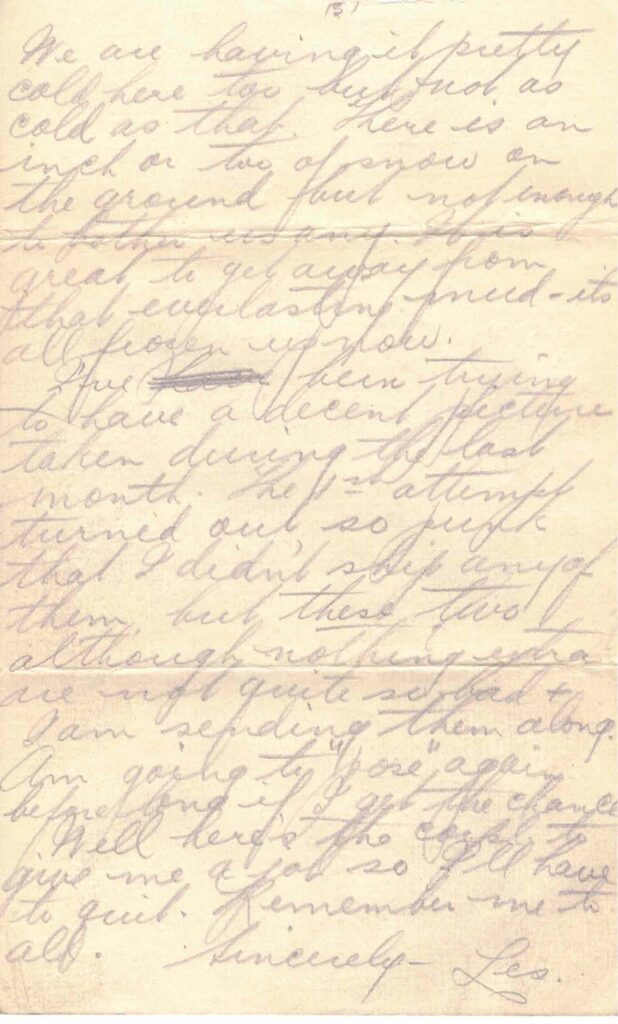 (3)
We are having it pretty
cold here too but not as
cold as that. There is an
inch or two of snow on
the ground but not enough
to bother us any. It is
great to get away from
that everlasting mud - its
all frozen up now.
I've been trying
to have a decent picture
taken during the last
month. The 1st attempt
turned out so punk
that I didn't ship any of
them, but these two
although nothing extra
are not quite so bad +
I am sending them along.
Am going to "pose" again
before long if I get the chance
Well here's the to
give me a job so I'll have
to quit. Remember me to
all. Sincerely - Les.